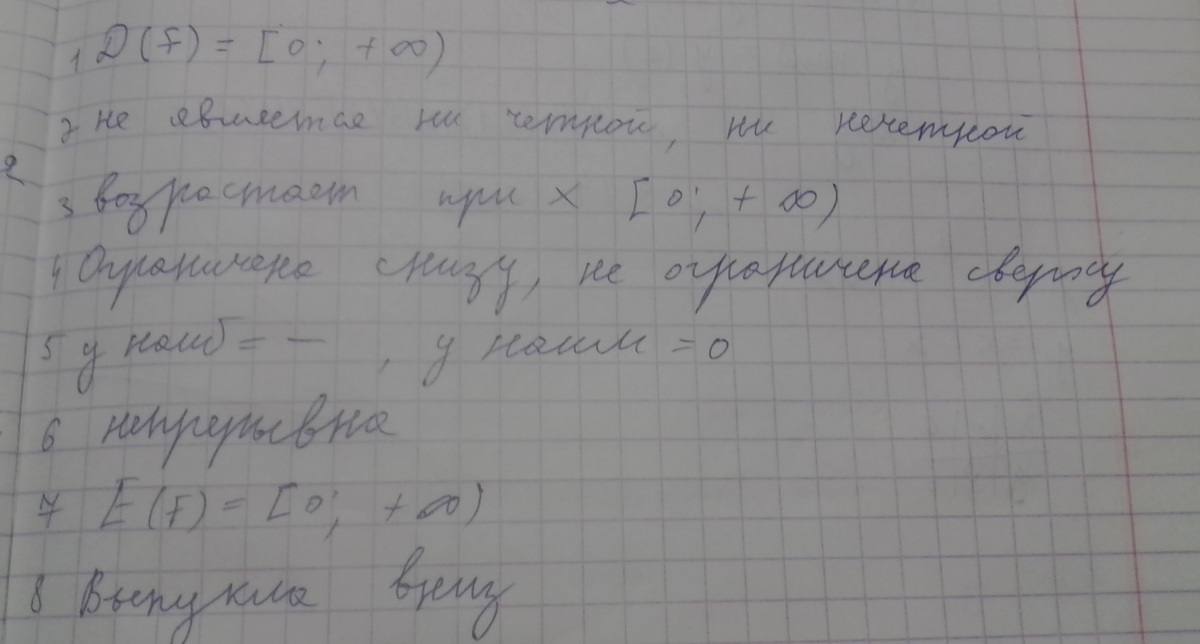 1 D(f) = [0; +∞)
2 не является ни четной, ни нечетной
2
3 возрастает при x [0; +∞)
4 Ограничена снизу, не ограничена сверху
5 y наиб = — , y наим = 0
6 непрерывна
7 E(f) = [0; +∞)
8 Выпукла вниз